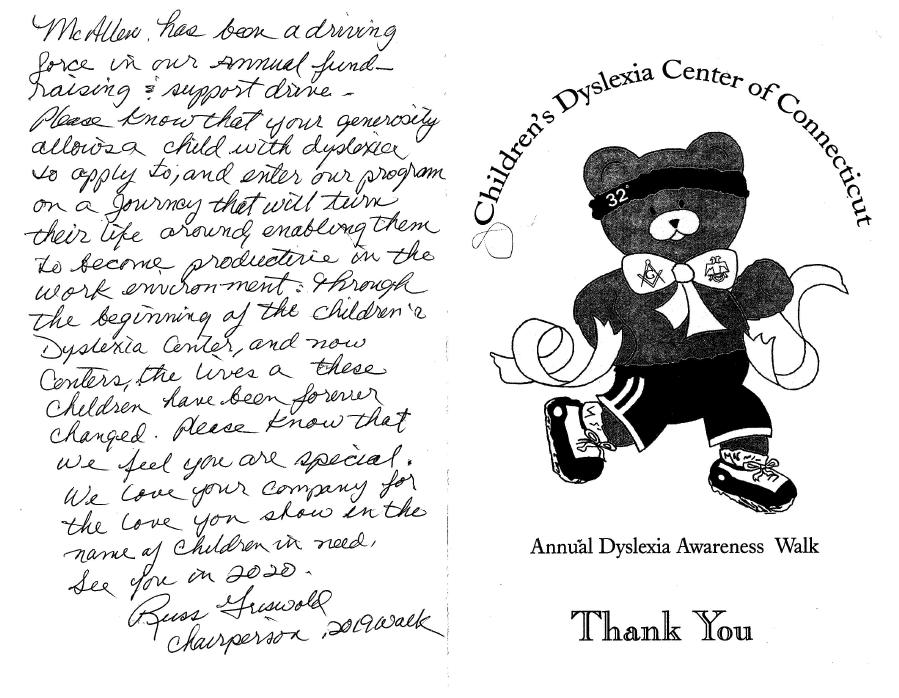 McAllen, has been a driving
force in our annual fund-
raising & support drive -
Please know that your generosity
allows a child with dyslexia
to apply to, and enter our program
on a journey that will turn
their life around, enabling them
to become productive in the
work environment. Through
the beginning of the Children's
Dyslexia Center, and now
Centers, the lives a these
children have been forever
changed. Please know that
we feel you are special.
We love your company for
the love you show in the
name of children in need.
See you in 2020.
Russ Griswold
Chairperson, 2019 walk
Children's Dyslexia Center of Connecticut
32°
G
Annual Dyslexia Awareness Walk
Thank You